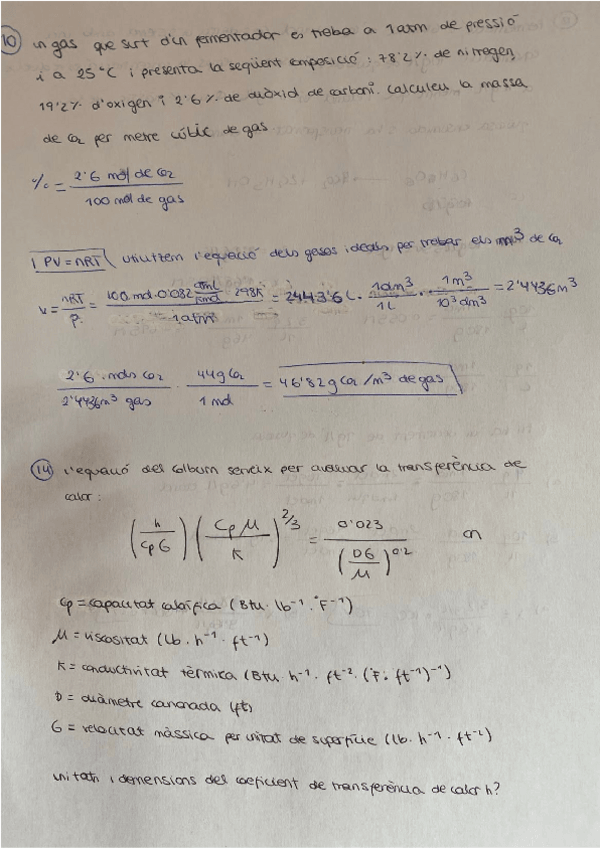 10 un gas que surt d'un fermentador es troba a 1 atm de pressió
i a 25 °C i presenta la següent composició: 78'2 % de nitrogen,
19'2 % d'oxigen i 2'6 % de diòxid de carboni. Calculeu la massa
de CO2 per metre cúbic de gas
% = 2'6 mol de CO2 / 100 mol de gas
PV = nRT utilitzem l'equació dels gasos ideals per trobar els m³ de CO2
V = nRT / P = 100 mol · 0'082 atm L / K mol · 298K / 1 atm = 2443'6 L · 1 dm³ / 1 L · 1 m³ / 10³ dm³ = 2'4436 m³
2'6 mols CO2 / 2'4436 m³ gas · 44 g CO2 / 1 mol = 46'82 g CO2 / m³ de gas
14 L'equació del Colburn serveix per avaluar la transferència de
calor:
(h / Cp G) (Cp μ / K)^2/3 = 0'023 / (DG / μ)^0'2 on
Cp = capacitat calorífica (Btu · lb⁻¹ · °F⁻¹)
μ = viscositat (lb · h⁻¹ · ft⁻¹)
K = conductivitat tèrmica (Btu · h⁻¹ · ft⁻² · (°F · ft⁻¹)⁻¹)
D = diàmetre canonada (ft)
G = velocitat màssica per unitat de superfície (lb · h⁻¹ · ft⁻²)
unitats i dimensions del coeficient de transferència de calor h?